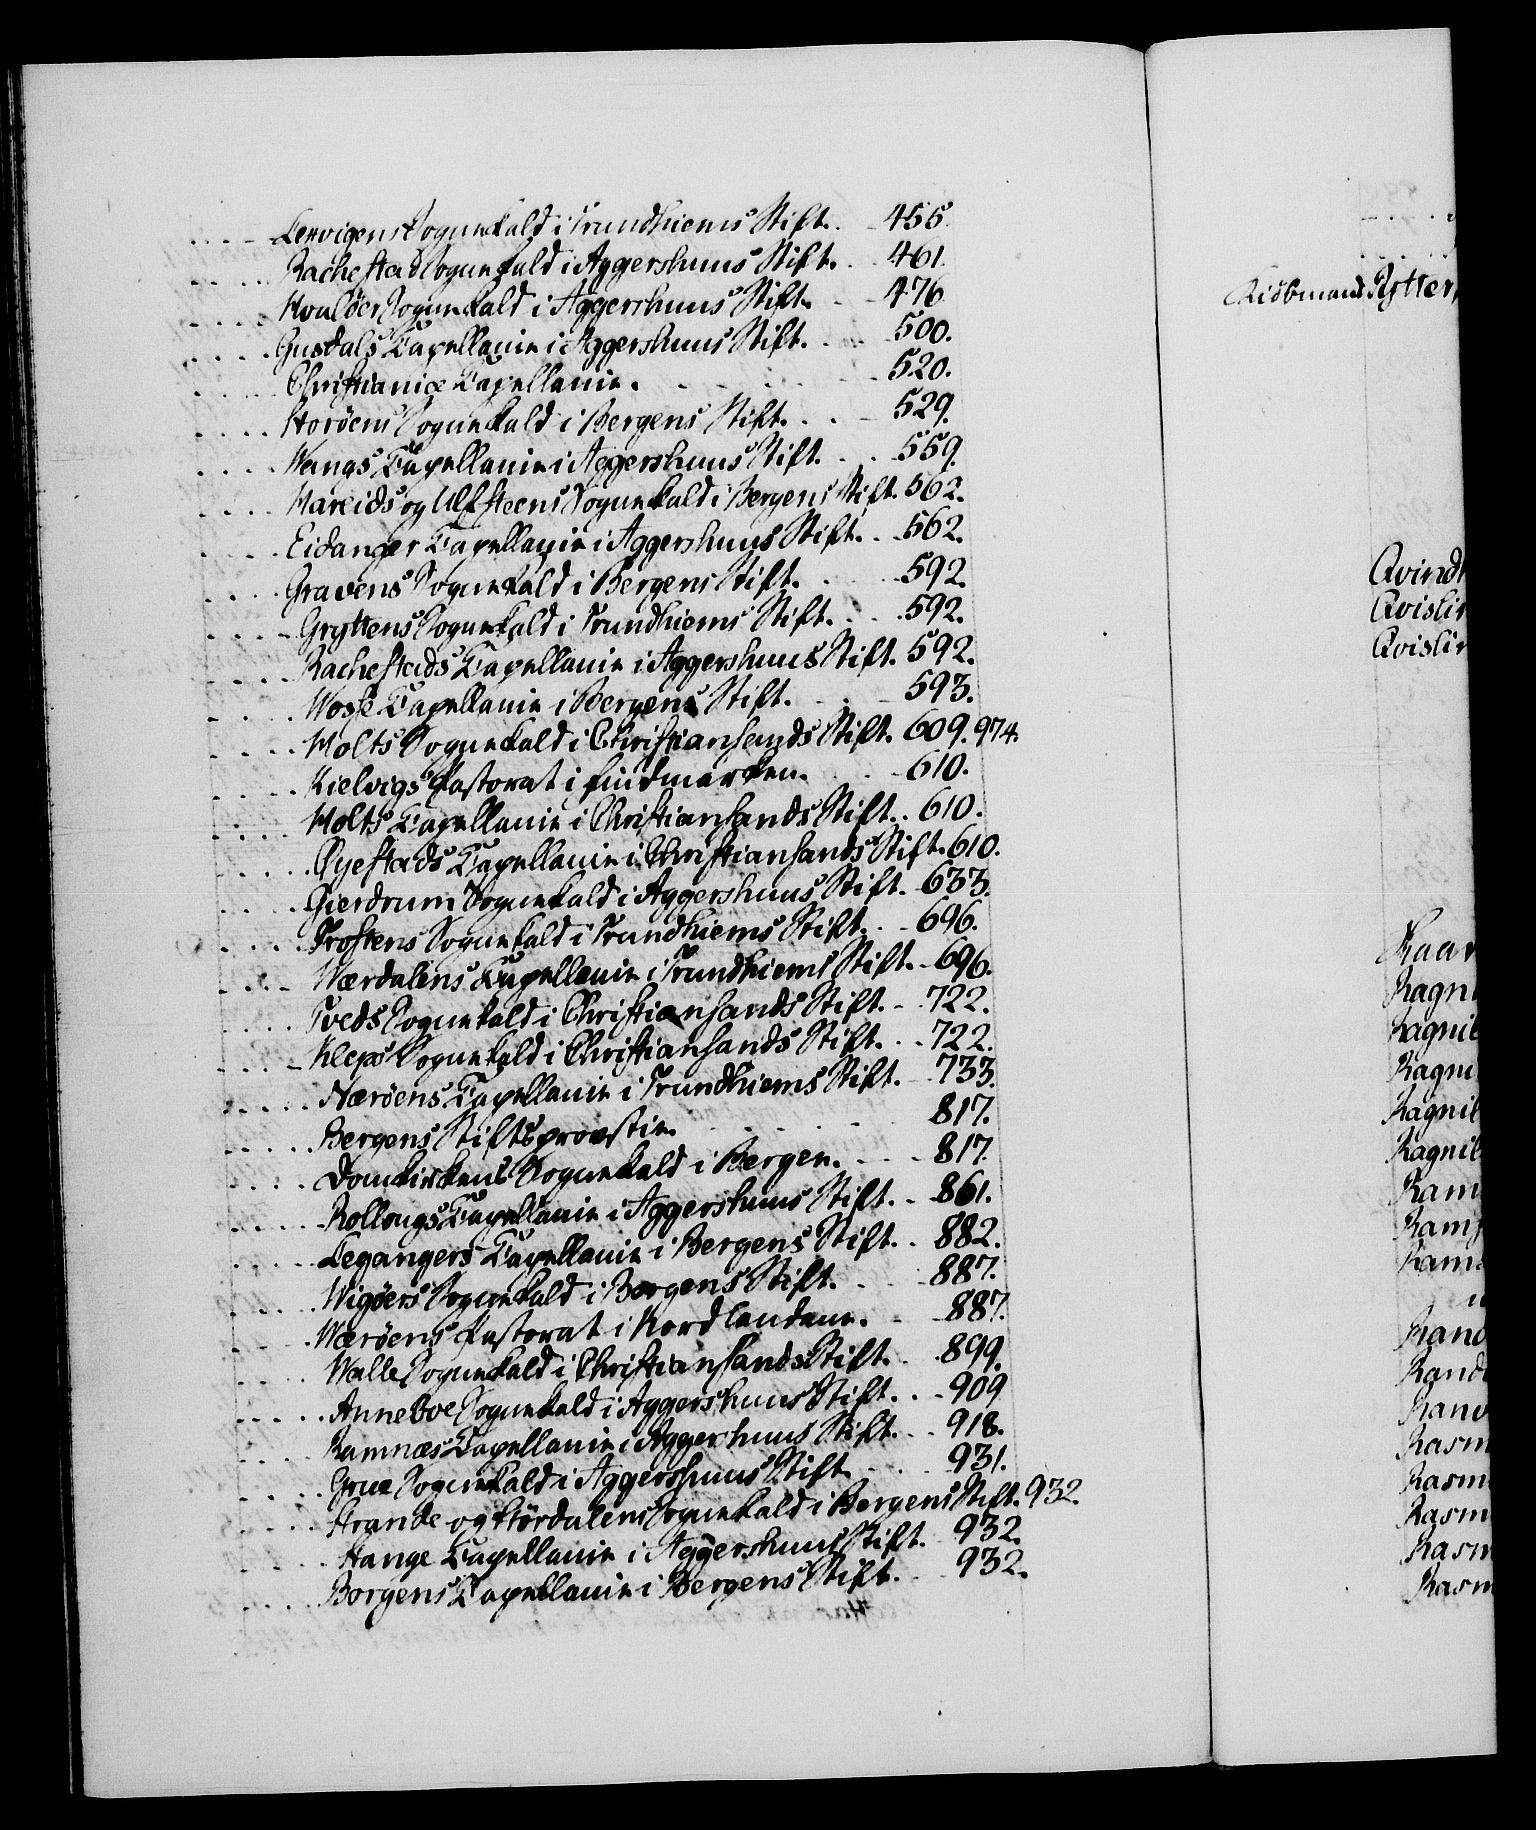 .... Lervigens Sognekald i Trundhiems Stift. . 455.
.... Rachestad Sognekald i Aggershuus Stift. . 461.
.... Hvaløer Sognekald i Aggershuus Stift. . 476
.... Gusdals Capellanie i Aggershuus Stift. . . 500.
.... Christianiæ Capellanie. . . . . . 520.
.... Storøens Sognekald i Bergens Stift. . . 529.
.... Wangs Capellanie i Aggershuus Stift. . . 559.
.... Hareids og Ulfsteens Sognekald i Bergens Stift. 562.
.... Eidanger Capellanie i Aggershuus Stift. . . 562.
.... Gravens Sognekald i Bergens Stift. . . 592.
.... Gryttens Sognekald i Trundhiems Stift. . . 592.
.... Rachestads Capellanie i Aggershuus Stift. 592.
.... Wosse Capellanie i Bergens Stift. . . 593.
.... Holts Sognekald i Christiansands Stift. 609. 974.
.... Kielvigs Pastorat i Findmarken. . . 610.
.... Holts Capellanie i Christiansands Stift. . 610.
.... Øyestads Capellanie i Christiansands Stift. 610.
.... Gierdrum Sognekald i Aggershuus Stift. . 633.
.... Frostens Sognekald i Trundhiems Stift. . . 696.
.... Wærdalens Capellanie i Trundhiems Stift. . 696.
.... Tveds Sognekald i Christiansands Stift. . 722.
.... Kleps Sognekald i Christiansands Stift. . . 722.
.... Nærøens Capellanie i Trundhiems Stift. . 733.
.... Bergens Stiftsprovstie. . . . . . 817.
.... Domkirkens Sognekald i Bergen. . . . 817.
.... Rollougs Capellanie i Aggershuus Stift. . 861.
.... Legangers Capellanie i Bergens Stift. . 882.
.... Wigøers Sognekald i Bergens Stift. . . 887.
.... Værøens Pastorat i Nordlandene. . . 887.
.... Walle Sognekald i Christiansands Stift. . . 899.
.... Anneboe Sognekald i Aggershuus Stift. . . 909
.... Ramnæs Capellanie i Aggershuus Stift. . . 918.
.... Grue Sognekald i Aggershuus Stift. . . 931.
.... Strande og Stördalens Sognekald i Bergens Stift. 932.
.... Stange Capellanie i Aggershuus Stift. . 932.
.... Borgens Capellanie i Bergens Stift. . . 932.
Kiöbmand Rytter
Qvindh
Qvislin
Qvislin
Raar
Ragni
Ragnil
Ragni
Ragnil
Ragnil
Ram
Ram
Ram
Rand
Rand
Rano
Rasm
Rasm
Rasm
Rasm
Rasm